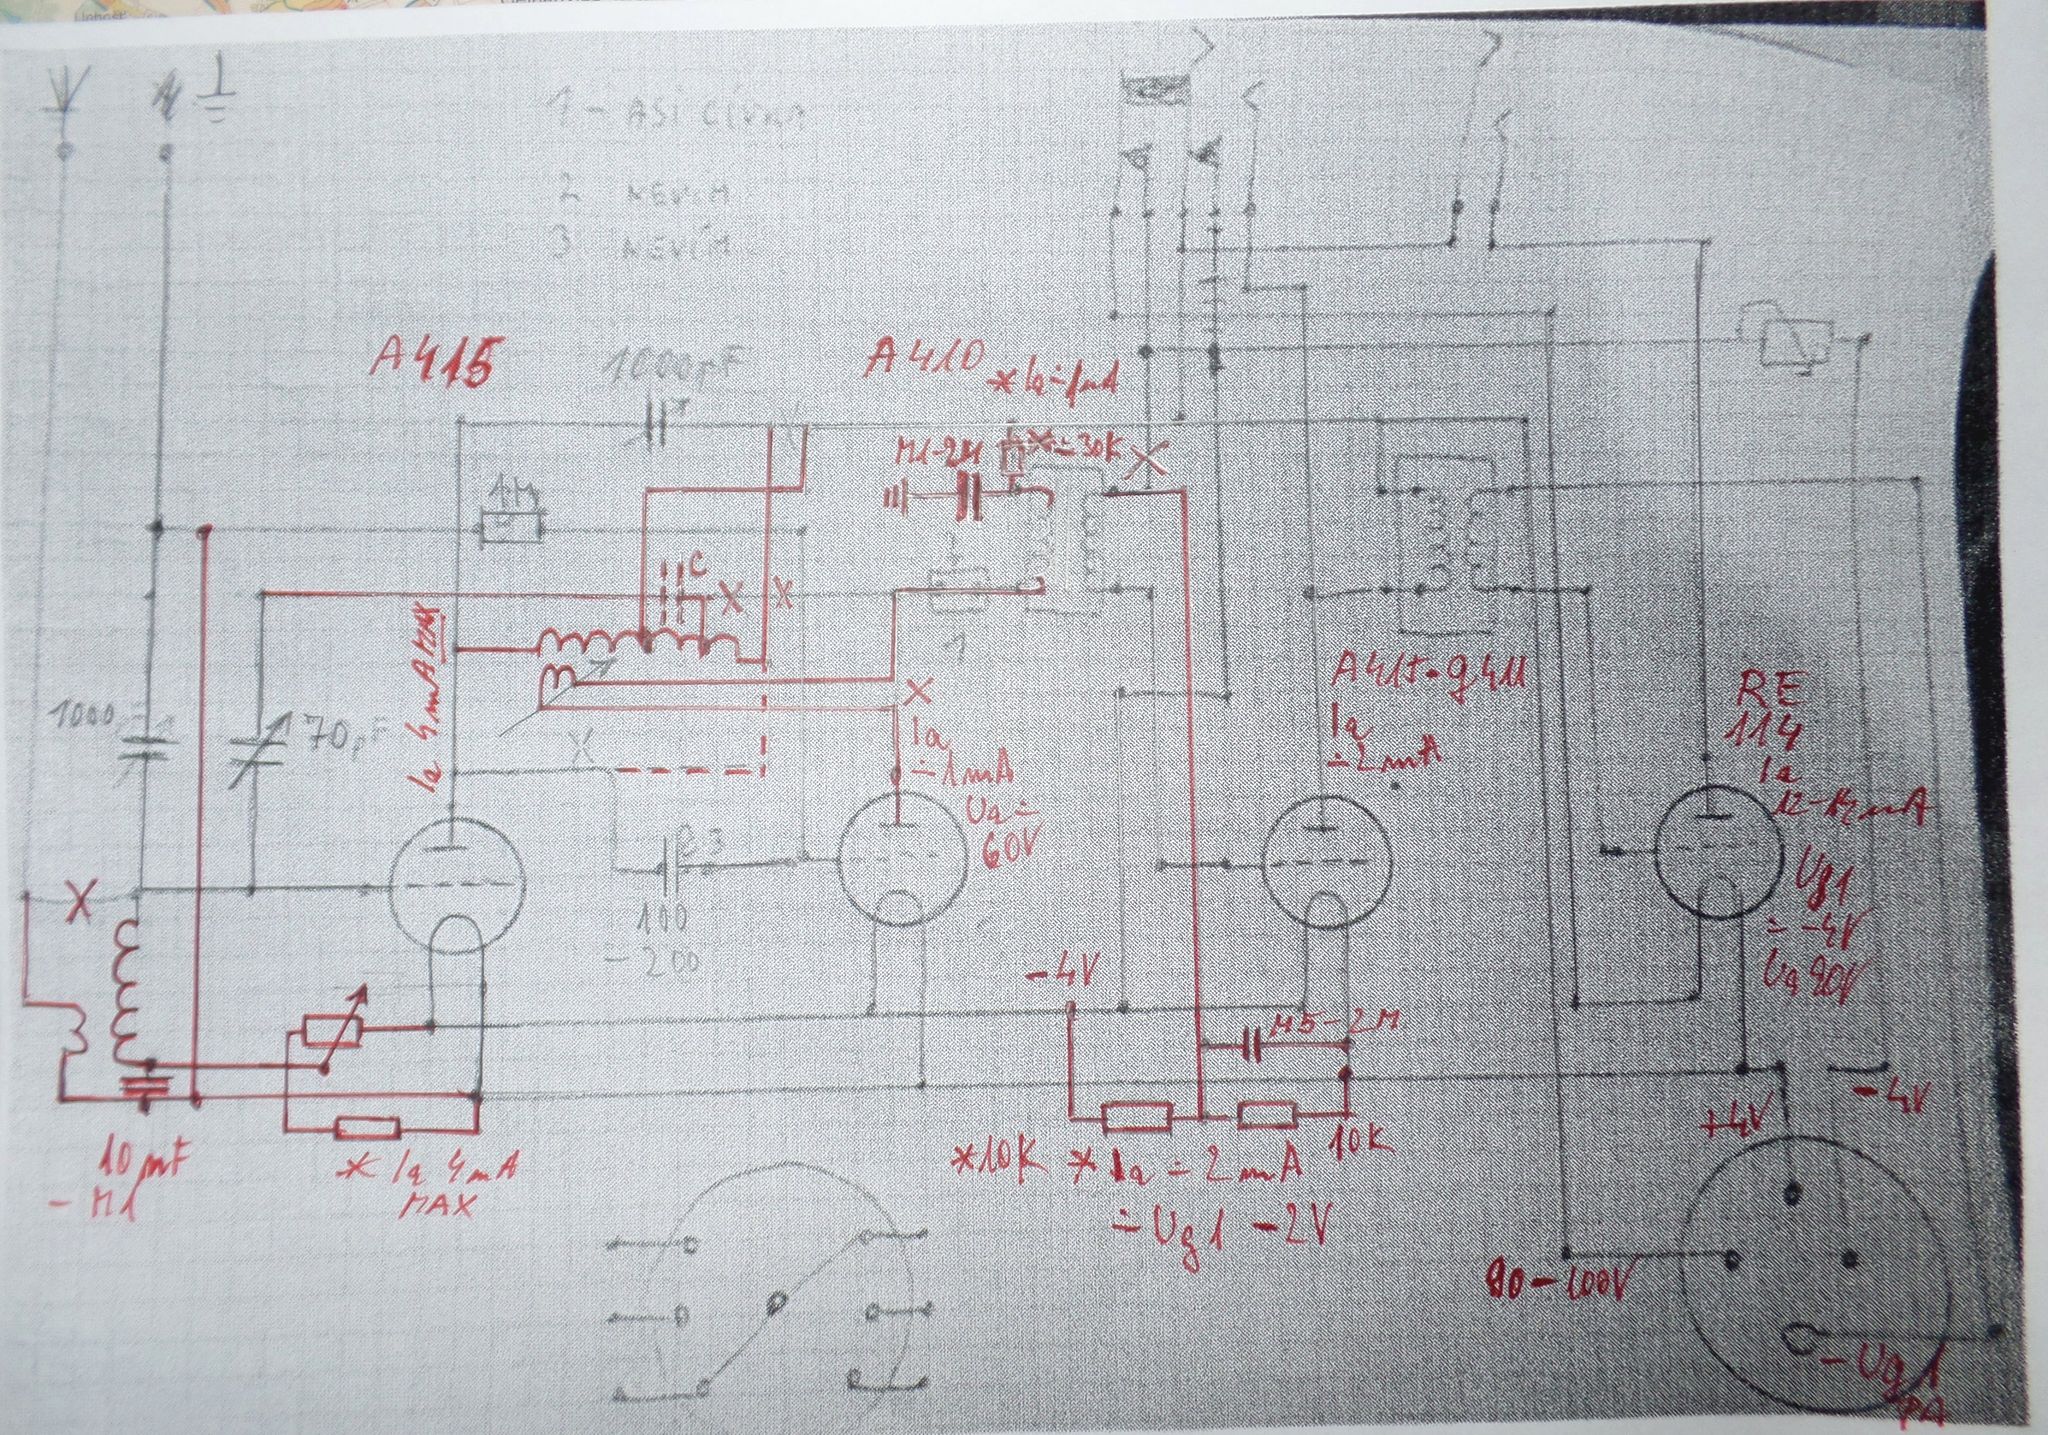 1 - ASI CÍVKA
2 NEVÍM
3 NEVÍM
A415
1000pF
A410
* Ia ≐ 1mA
M1-2M
* ≐ 30K
1M
C
Ia 4mA MAX
1
1000
70pF
Ia
≐ 1mA
Ua ≐
60V
A415 - g411
Ia
≐ 2mA
RE
114
Ia
12-14mA
Ug1
≐ -4V
Ua 90V
C 3
100
- 200
-4V
M5-2M
10 mF
- M1
* Ia 4mA
MAX
*10K
* Ia ≐ 2mA
10K
≐ Ug1 -2V
+4V
-4V
90-100V
-Ug1